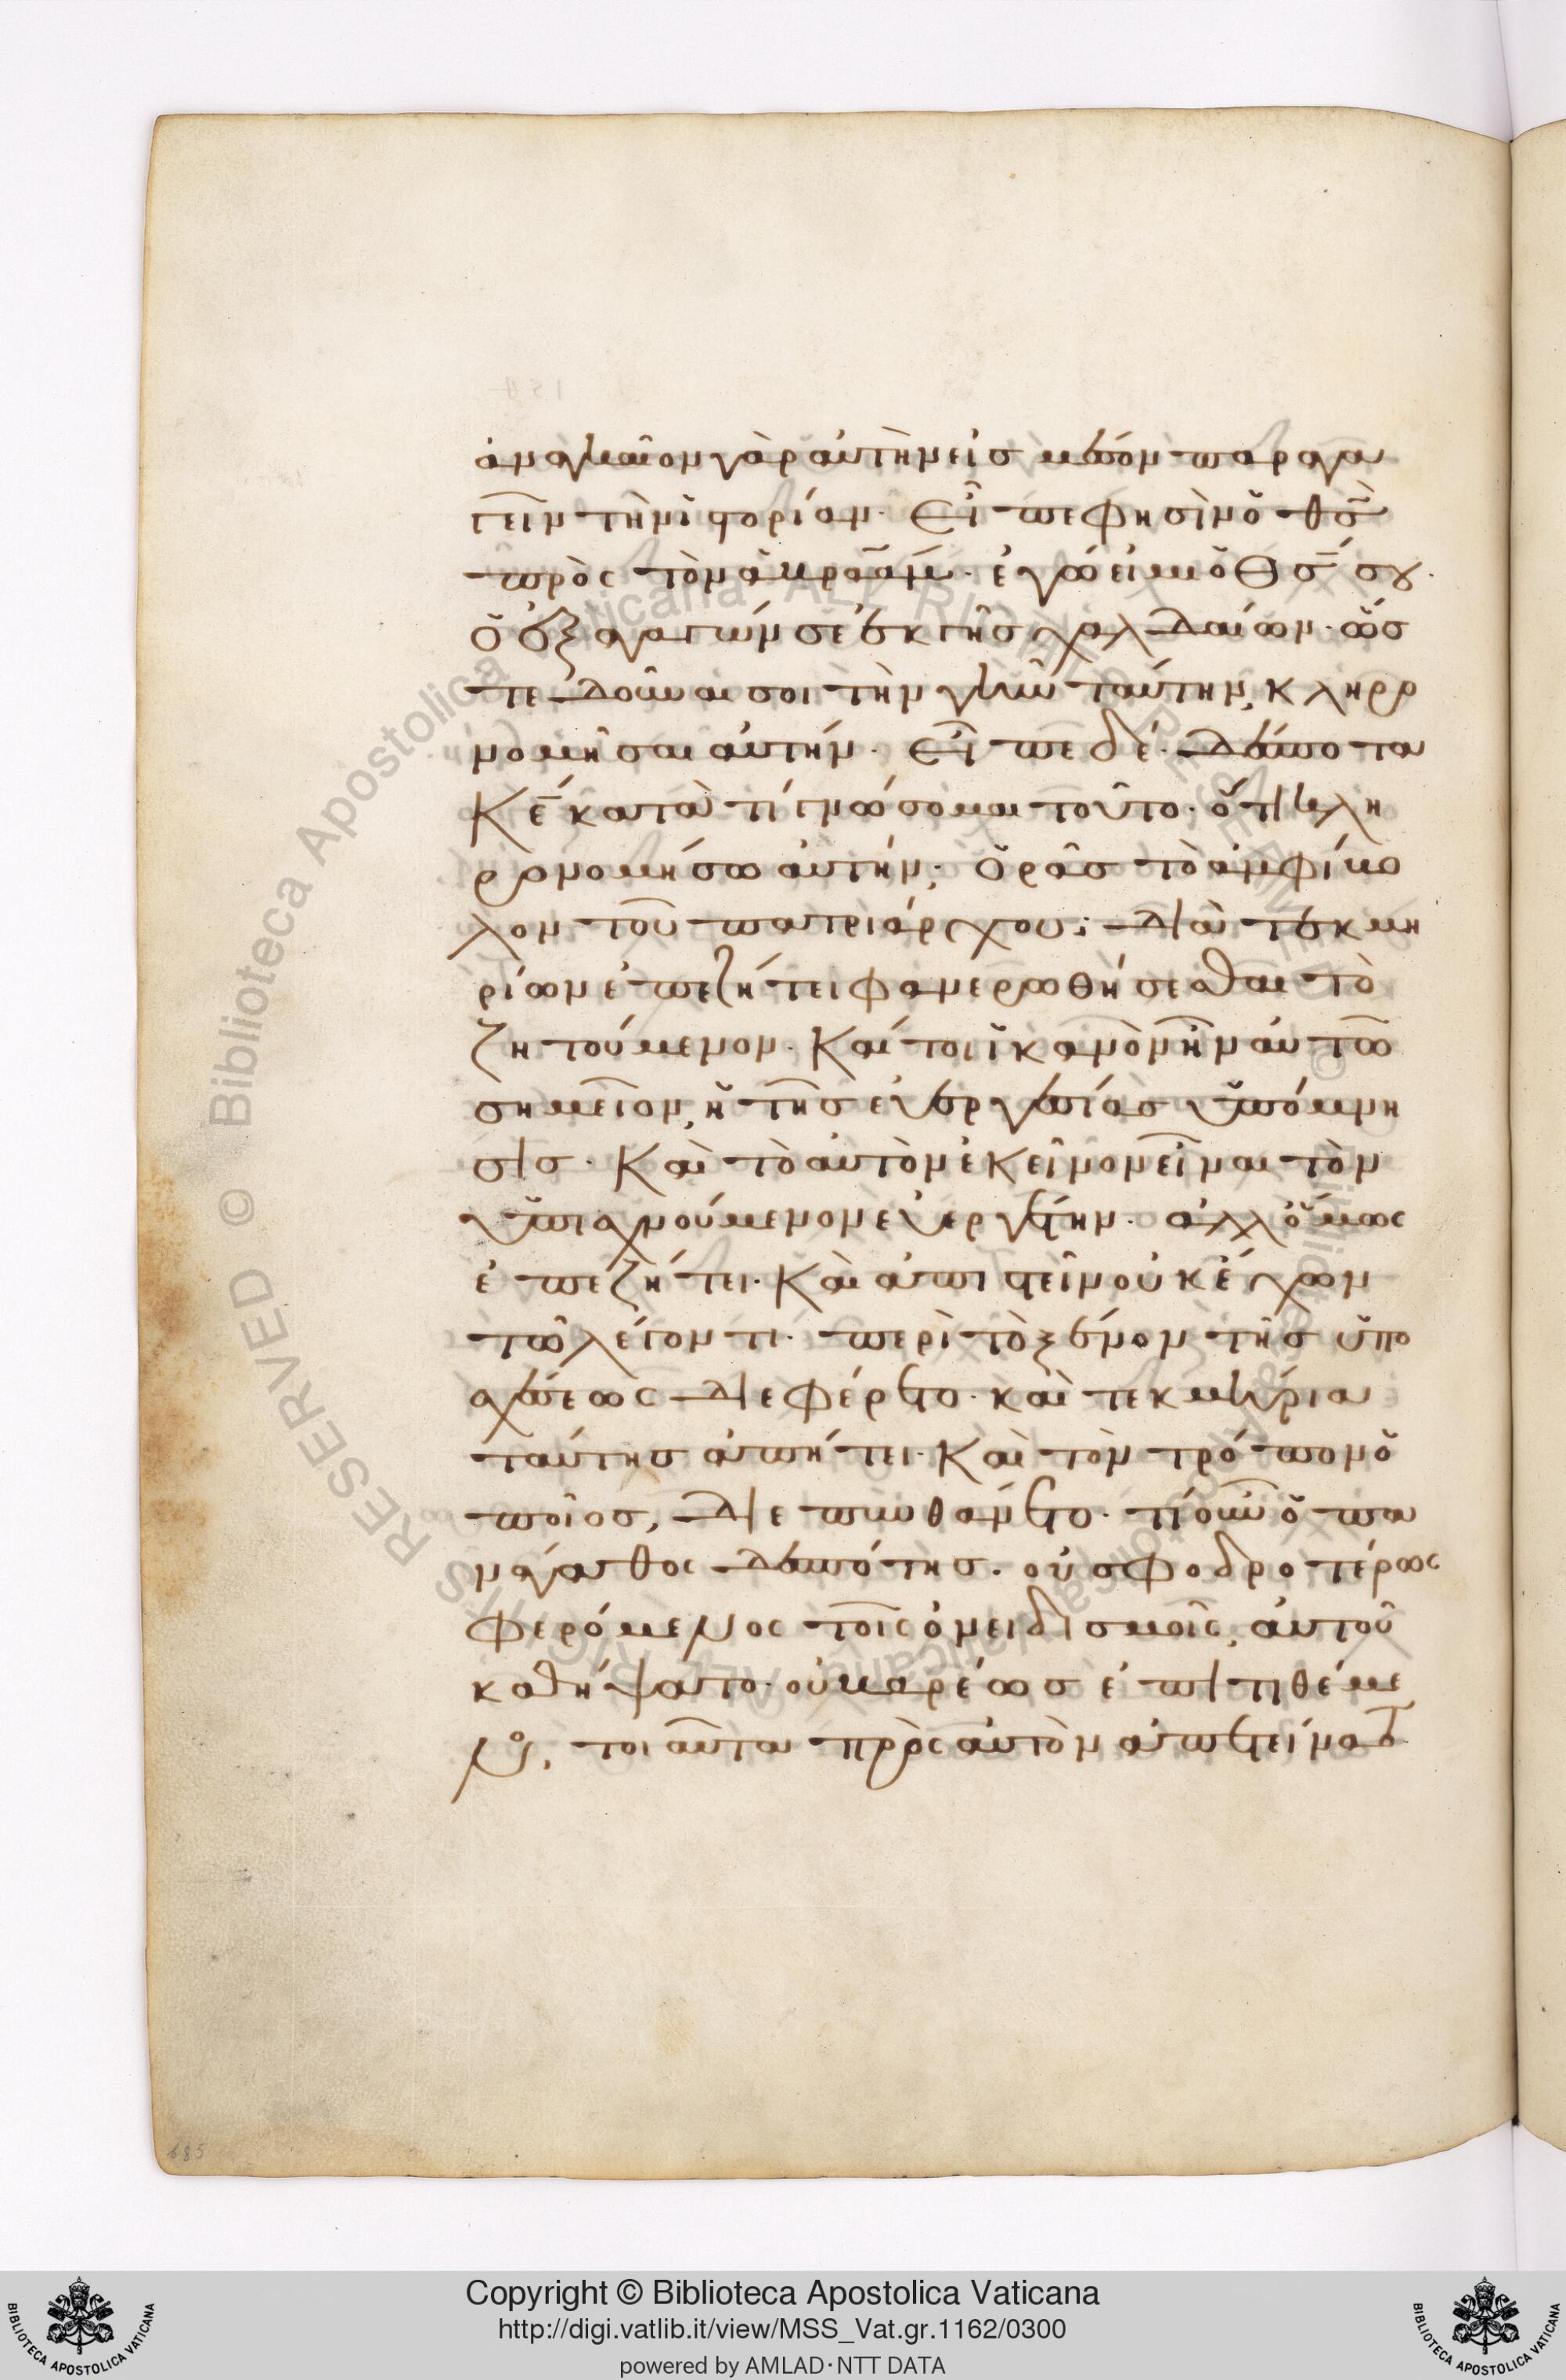 ἀναγκαῖον γὰρ αὐτὴν εἰσ μέσον παραγα
γεῖν τὴν ἱστορίαν· Εἶπε φησὶν ὁ θσ̅
πρὸς τὸν ἀβραάμ· ἐγώ εἰμι ὁ Θσ̅ σου·
ὁ ἐξαγαγών σε ἐκ γῆσ χαλδαίων· ὥσ
τε δοῦναι σοι τὴν γῆν ταύτην, κληρο
νομῆσαι αὐτήν· Εἶπε δέ· Δέσποτα
Κε̅ κατὰ τί γνώσομαι τοῦτο· ὅτι κλη
ρονομήσω αὐτήν; Ὁρᾶσ τὸ ἀμφίβο
λον τοῦ πατριάρχου; Διὰ τεκμη
ρίων ἐπεζήτει φανερωθήσεσθαι τὸ
ζητούμενον· Καίτοι ἱκανὸν ἦν αὐτῶ
σημεῖον, ἡ τῆσ εὐεργεσίασ ὑπόμνη
σισ· Καὶ τὸ αὐτὸν ἐκεῖνον εἶναι τὸν
ὑπισχνούμενον εὐεργέτην· ἀλλ' ὅμως
ἐπεζήτει· Καὶ ἀπιστεῖν οὐκ ἔχων
τῶ λέγοντι· περὶ τὸ ξένον τῆσ ὑπο
σχέσεως διεφέρετο· καὶ τεκμήρια
ταύτησ ἀπήτει· Καὶ τὸν τρόπον ὁ
ποῖοσ, διεπυνθάνετο· τί οὖν ὁ πα
νάγαθος δεσπότησ· οὐ σφοδροτέρως
φερόμενος τοῖς ὀνειδισμοῖς, αὐτοῦ
καθήψατο· οὐ βαρέωσ ἐπιτιθέμε
νος, τοιαῦτα πρὸς αὐτὸν ἀπετείνατο·
685
Copyright © Biblioteca Apostolica Vaticana
http://digi.vatlib.it/view/MSS_Vat.gr.1162/0300
powered by AMLAD·NTT DATA
BIBLIOTECA APOSTOLICA VATICANA
BIBLIOTECA APOSTOLICA VATICANA